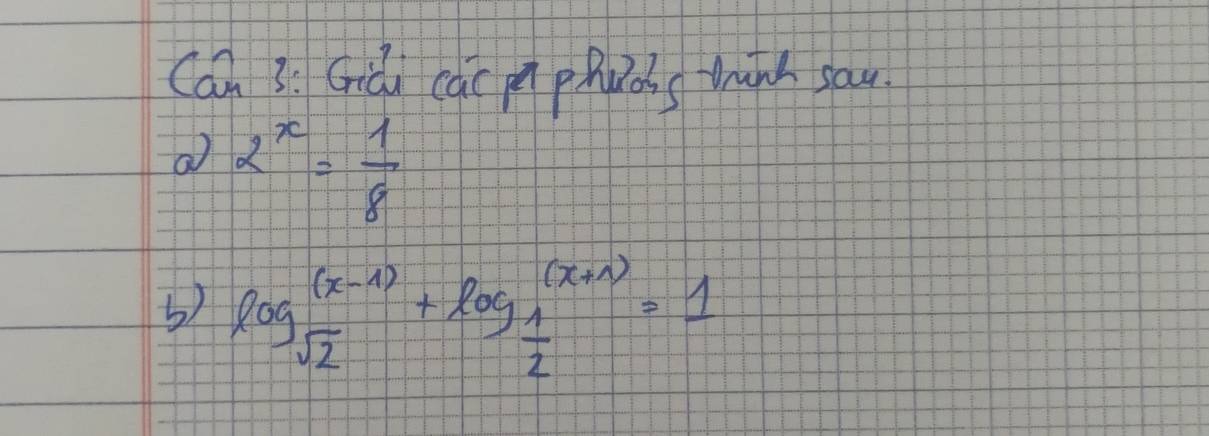 Câu 3: Giải các phương trình sau.
a) 2^x = 1/8
b) log_{√2}^{(x-1)} + log_{1/2}^{(x+1)} = 1